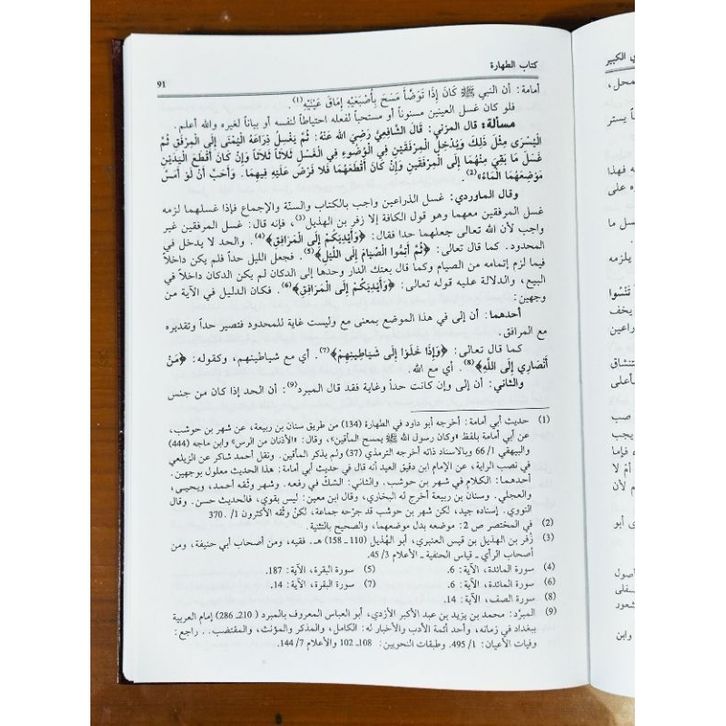 كتاب الطهارة
91
أمامة: أن النبي ﷺ كَانَ إِذَا تَوَضَّأَ مَسَحَ بِأَصْبَعَيْهِ إِمَاقَ عَيْنَيْهِ(1).
فلو كان غسل العينين مسنوناً أو مستحباً لفعله احتياطاً لنفسه أو بياناً لغيره والله أعلم.
مسألة: قال المزني: قَالَ الشَّافِعِيُّ رَضِيَ اللهُ عَنْهُ: ثُمَّ يَغْسِلُ ذِرَاعَهُ الْيُمْنَى إِلَى الْمِرْفَقِ ثُمَّ
الْيُسْرَى مِثْلَ ذَلِكَ وَيُدْخِلُ الْمِرْفَقَيْنِ فِي الْوُضُوءِ فِي الْغَسْلِ ثَلَاثاً ثَلَاثاً وَإِنْ كَانَ أَقْطَعَ الْيَدَيْنِ
غَسَلَ مَا بَقِيَ مِنْهُمَا إِلَى الْمِرْفَقَيْنِ وَإِنْ كَانَ أَقْطَعَهُمَا فَلَا فَرْضَ عَلَيْهِ فِيهِمَا. وَأُحِبُّ أَنْ لَوْ أَمَسَّ
مَوْضِعَهُمَا الْمَاءَ»(2)
وقال الماوردي: غسل الذراعين واجب بالكتاب والسنّة والإجماع فإذا غسلهما لزمه
غسل المرفقين معهما وهو قول الكافة إلا زفر بن الهذيل(3)، فإنه قال: غسل المرفقين غير
واجب لأن الله تعالى جعلهما حدا فقال: ﴿وَأَيْدِيَكُمْ إِلَى الْمَرَافِقِ﴾(4). والحد لا يدخل في
المحدود. كما قال تعالى: ﴿ثُمَّ أَتِمُّوا الصِّيَامَ إِلَى اللَّيْلِ﴾(5). فجعل الليل حداً فلم يكن داخلاً
فيما لزم إتمامه من الصيام وكما قال بعتك الدار وحدها إلى الدكان لم يكن الدكان داخلاً في
البيع، والدلالة عليه قوله تعالى: ﴿وَأَيْدِيَكُمْ إِلَى الْمَرَافِقِ﴾(6). فكان الدليل في الآية من
وجهين:
أحدهما: أن إلى في هذا الموضع بمعنى مع وليست غاية للمحدود فتصير حداً وتقديره
مع المرافق.
كما قال تعالى: ﴿وَإِذَا خَلَوْا إِلَى شَيَاطِينِهِمْ﴾(7). أي مع شياطينهم، وكقوله: ﴿مَنْ
أَنْصَارِي إِلَى اللَّهِ﴾(8). أي مع الله.
والثاني: أن إلى وإن كانت حداً وغاية فقد قال المبرد(9): أن الحد إذا كان من جنس
(1) حديث أبي أمامة: أخرجه أبو داود في الطهارة (134) من طريق سنان بن ربيعة، عن شهر بن حوشب،
عن أبي أمامة بلفظ «وكان رسول الله ﷺ يمسح المأقين»، وقال: «الأذنان من الرس» وابن ماجه (444)
والبيهقي 1/ 66 وبالاسناد ذاته أخرجه الترمذي (37) ولم يذكر المأقين. ونقل أحمد شاكر عن الزيلعي
في نصب الراية، عن الإمام ابن دقيق العيد أنه قال في حديث أبي أمامة: هذا الحديث معلول بوجهين.
أحدهما: الكلام في شهر بن حوشب. والثاني: الشك في رفعه. وشهر وثّقه أحمد، ويحيى،
والعجلي. وسنان بن ربيعة أخرج له البخاري، وقال ابن معين: ليس بقوي، فالحديث حسن. وقال
النووي. إسناده جيد، لكن شهر بن حوشب قد جرّحه جماعة، لكنْ وثّقه الأكثرون 1/ 370.
(2) في المختصر ص 2: موضعه بدل موضعهما، والصحيح بالتثنية.
(3) زفر بن الهذيل بن قيس العنبري، أبو الهُذيل (110 ــ 158) هـ. فقيه، ومن أصحاب أبي حنيفة، ومن
أصحاب الرأي ـ قياس الحنفية ـ الأعلام 3/ 45.
(4) سورة المائدة، الآية: 6. (5) سورة البقرة، الآية: 187.
(6) سورة المائدة، الآية: 6. (7) سورة البقرة، الآية: 14.
(8) سورة الصف، الآية: 14.
(9) المبرّد: محمد بن يزيد بن عبد الأكبر الأزدي، أبو العباس المعروف بالمبرد (210ــ 286) إمام العربية
ببغداد في زمانه، وأحد أئمة الأدب والأخبار له: الكامل، والمذكر والمؤنث، والمقتضب... راجع:
وفيات الأعيان: 1/ 495. وطبقات النحويين: 108ــ 102 والأعلام 7/ 144.
ي الكبير
لمحل،
اً يستر
يه فهذا
ره على
سل ما
يلزمه
تَنْسُوا
يخف
راعين
ستنشاق
أعلى
صب
يجب
فإما
أمْ لَا
م لأن
ى أبو
أصول
شعود
وابن